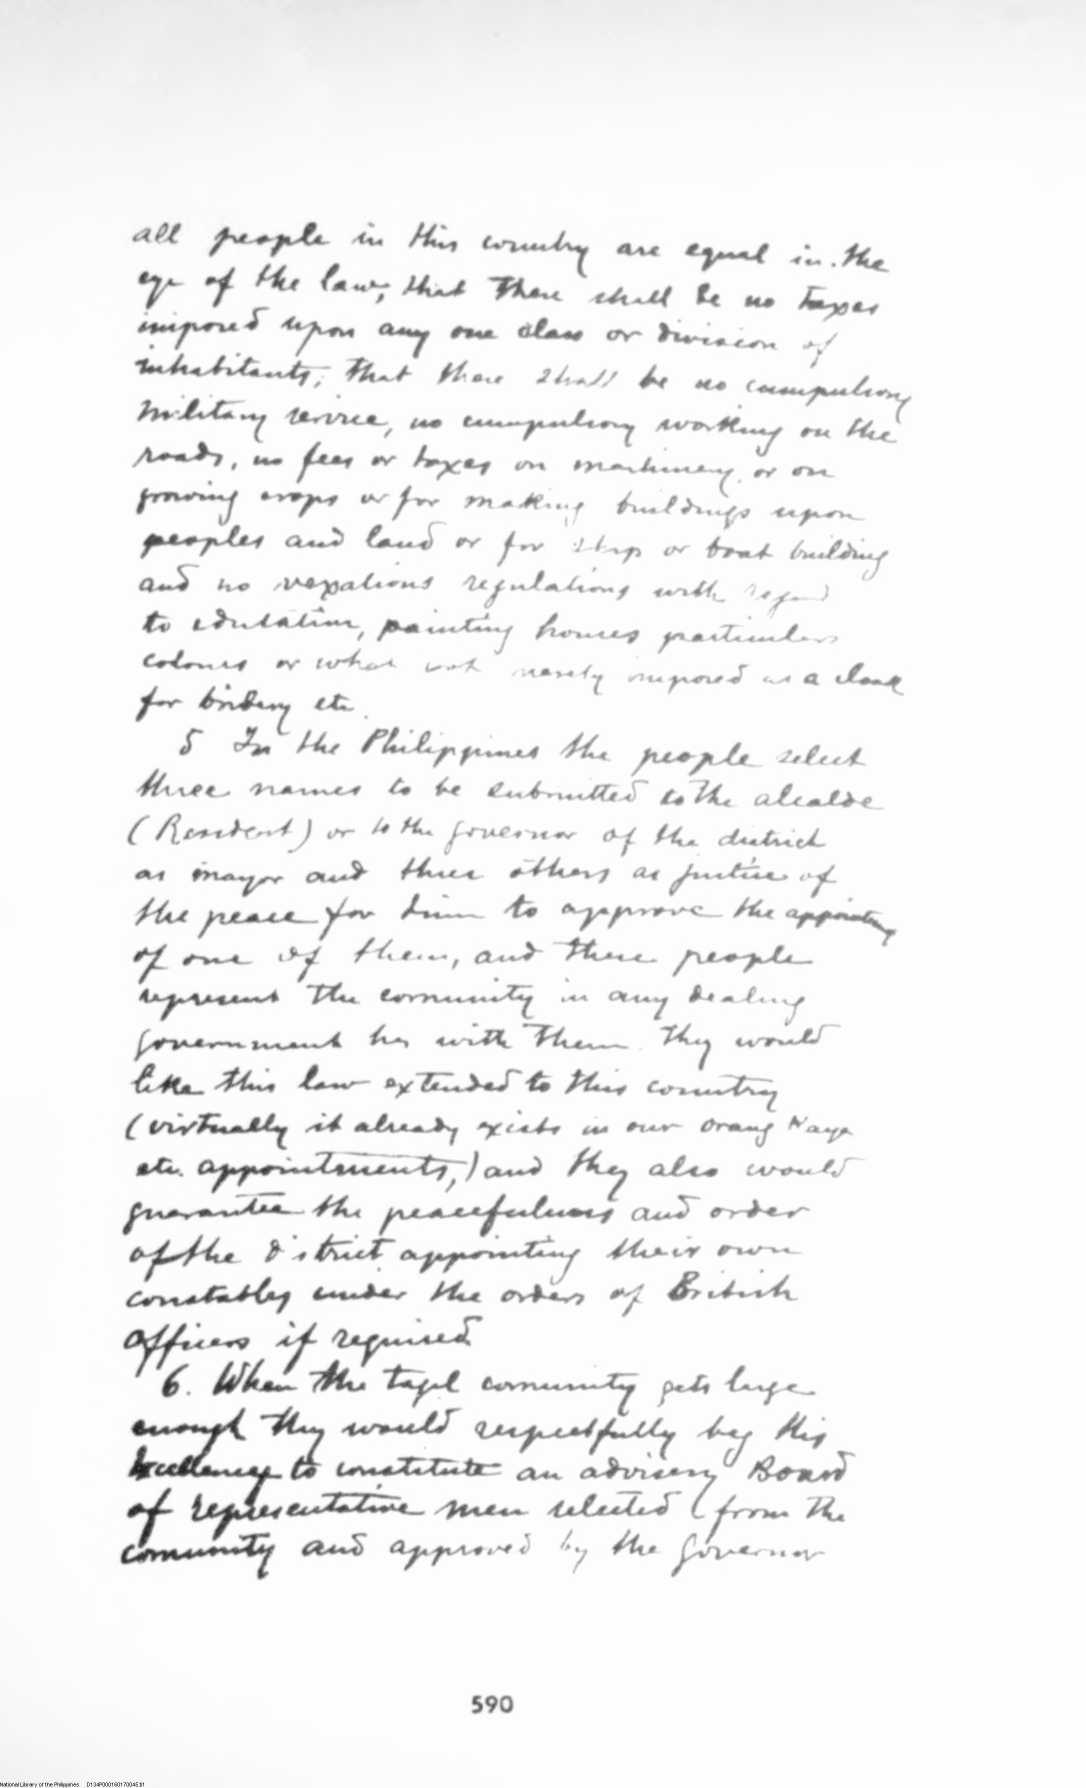 all people in this country are equal in the
eye of the law, that there shall be no taxes
imposed upon any one class or division of
inhabitants; that there shall be no compulsory
military service, no compulsory working on the
roads, no fees or taxes on machinery, or on
growing crops or for making buildings upon
peoples and land or for ship or boat building
and no vexatious regulations with regard
to education, painting houses particulars
colours or what not merely imposed as a cloak
for bribery etc.
5 In the Philippines the people select
three names to be submitted to the alcalde
(Resident) or to the governor of the district
as mayor and three others as justice of
the peace for him to approve the appointing
of one of them, and these people
represent the comunity in any dealing
government has with them. They would
like this law extended to this country
(virtually it already exists in our orang Kaya
etc. appointments,) and they also would
guarantee the peacefulness and order
of the district appointing their own
constables under the orders of British
officers if required
6. When the tagal comunity gets large
enough they would respectfully beg His
Excellency to constitute an advisery Board
of representative men selected (from the
comunity and approved by the Governor
590
National Library of the Philippines